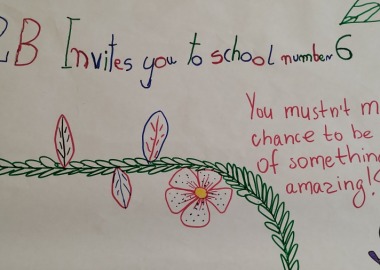 2B Invites you to school number 6
You mustn't m
chance to be
of something
amazing!